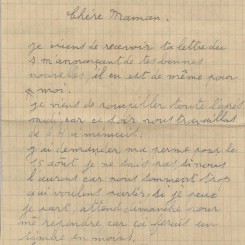 Chère Maman.
je viens de recevoir ta lettre du
5 m'annonçant de tes bonnes
nouvelles, il en est de même pour
moi.
je viens de roupiller toute l'après
midi car ce soir nous travaillons
de 4 H a minuit.
j'ai demander ma perme pour le
15 août je ne sais pas si nous
l'aurons car nous sommes trois
qui voulent partir. si je peux
je part, attend dimanche pour
me repondre car ça ferait un